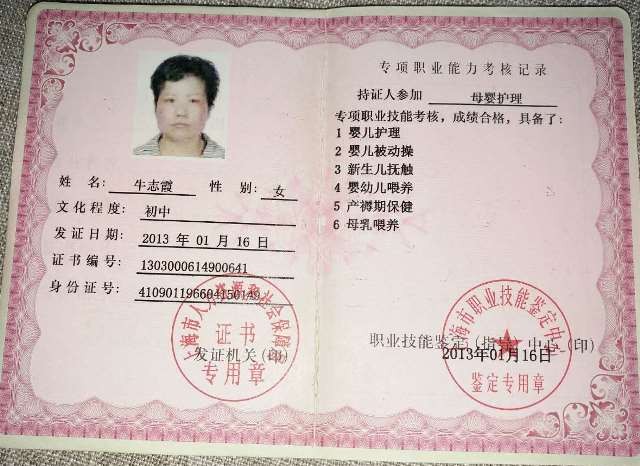 姓 名： 牛志霞 性 别： 女
文化程度： 初中
发证日期： 2013 年 01 月 16 日
证书编号： 1303000614900641
身份证号：
上海市人力资源和社会保障局
证书
发证机关(印)
专用章
专项职业能力考核记录
持证人参加 母婴护理
专项职业技能考核，成绩合格，具备了：
1 婴儿护理
2 婴儿被动操
3 新生儿抚触
4 婴幼儿喂养
5 产褥期保健
6 母乳喂养
上海市职业技能鉴定中心
职业技能鉴定(指导)中心(印)
2013年01月16日
鉴定专用章